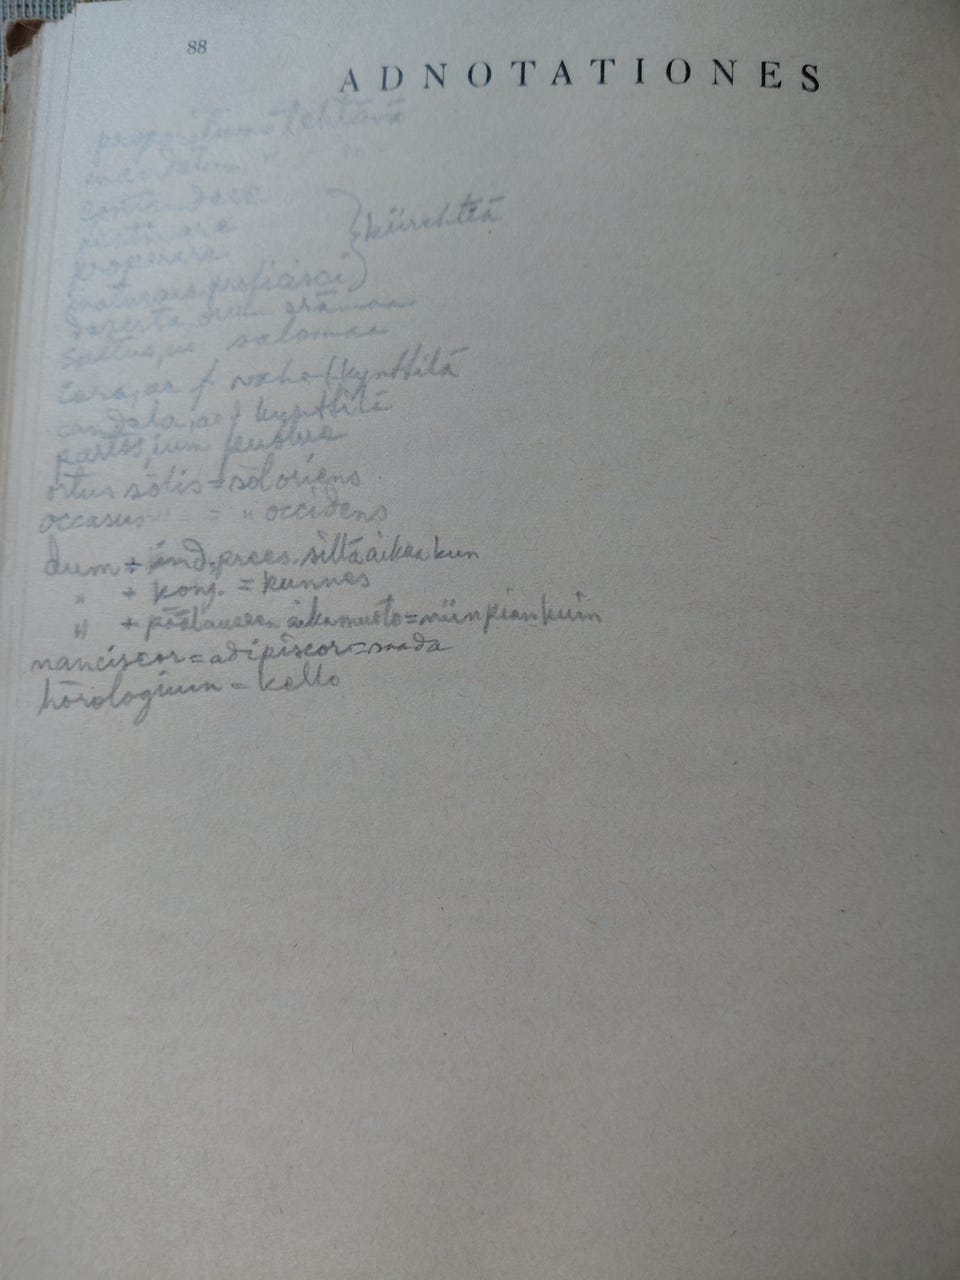 88
ADNOTATIONES
propositum tehtävä
mandatum " "
contendere
festinare
properare } kiirehtiä
maturare proficisci
deserta, orum erämaa
saltus, us salomaa
cera, ae f vaha (kynttilä
candela, ae f kynttilä
partes, ium puolue
ortus sōlis = sōl oriens
occasus " = " occidens
dum + ind. praes. sillä aikaa kun
" + konj. = kunnes
" + päälauseen aikamuoto = niin pian kuin
nanciscor = adipiscor = saada
hōrologium = kello